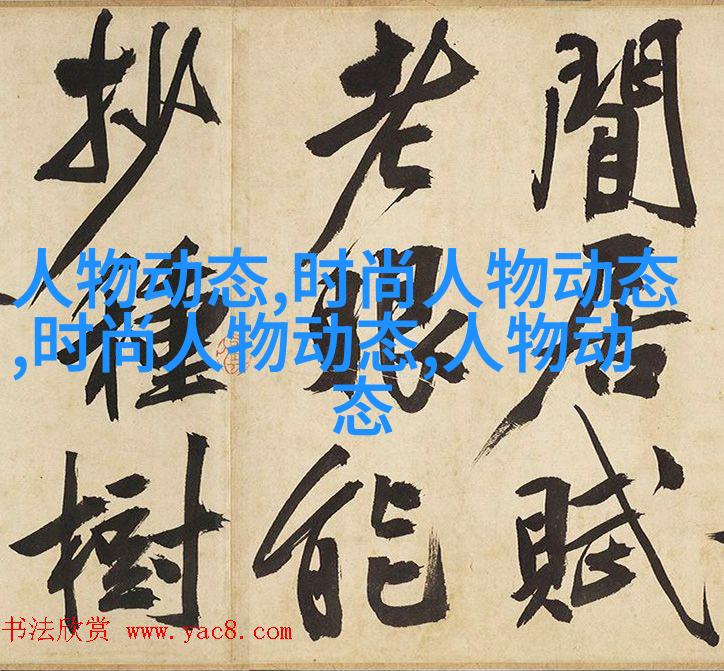 閒居賦
老眼能
抄種樹
人物动态,时尚人物动态
,时尚人物动态,人物动
态
书法欣赏 www.yac8.com